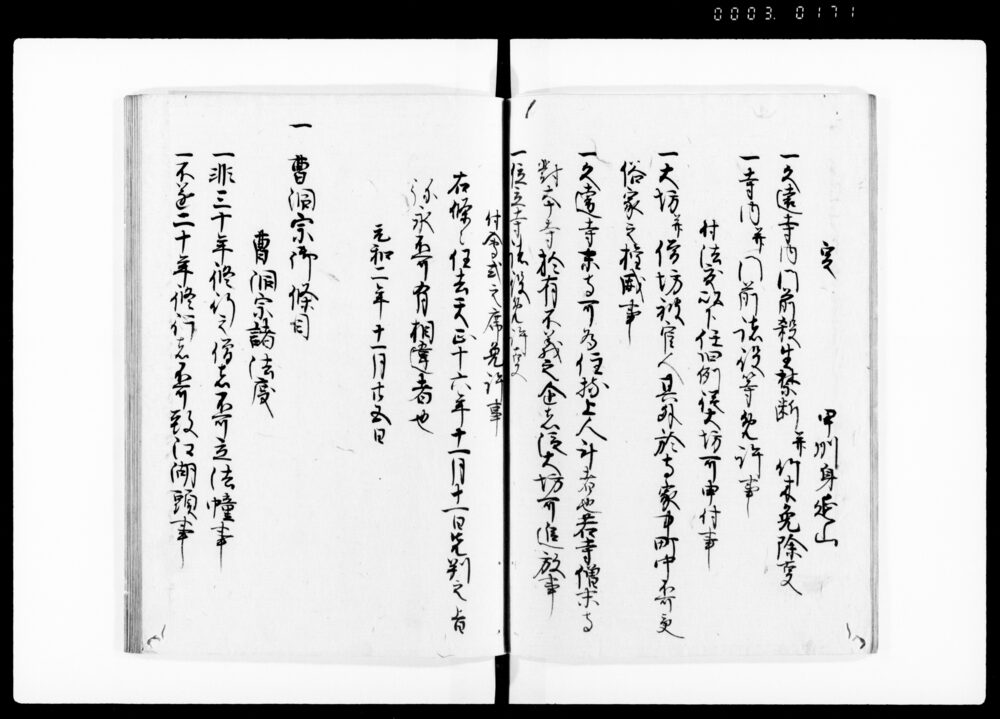 0003 0171
定
甲州身延山
一久遠寺内門前殺生禁断并竹木免除事
一寺内并門前諸役等免許事
付法度以下任旧例従大坊可申付事
一大坊并僧坊被官人具外於寺家中町中不可更
俗家之権威事
一久遠寺末寺可為住持上人計者也若寺僧末寺
對本寺於有不義之企者従大坊可追放事
一位立寺諸役免許事
付會式之席免許事
右條々任去天正十六年十一月十一日先判之旨
弥永不可有相違者也
元和二年十一月廿五日
一曹洞宗御條目
曹洞宗諸法度
一非三十年修行之僧者不可立法幢事
一不遂二十年修行者不可致江湖頭事